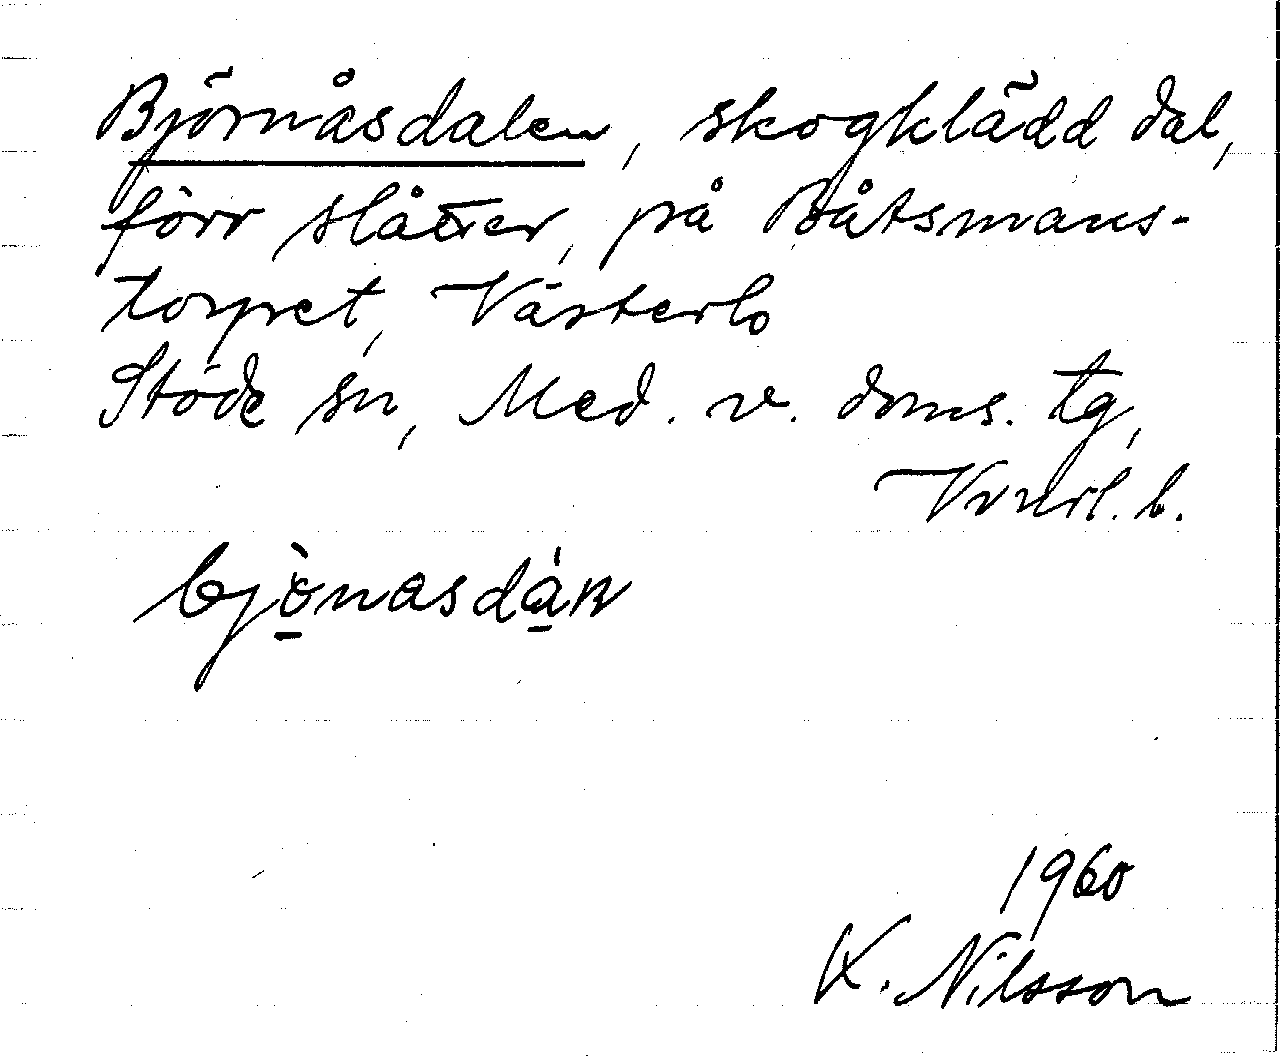 Björnåsdalen, skogklädd dal,
förr slåtter, på Båtsmans-
torpet, Västerlo
Stöde sn, Med. v. doms. tg,
Vnrl. l.
bjö̲̀nasdàɴ
1960
K. Nilsson